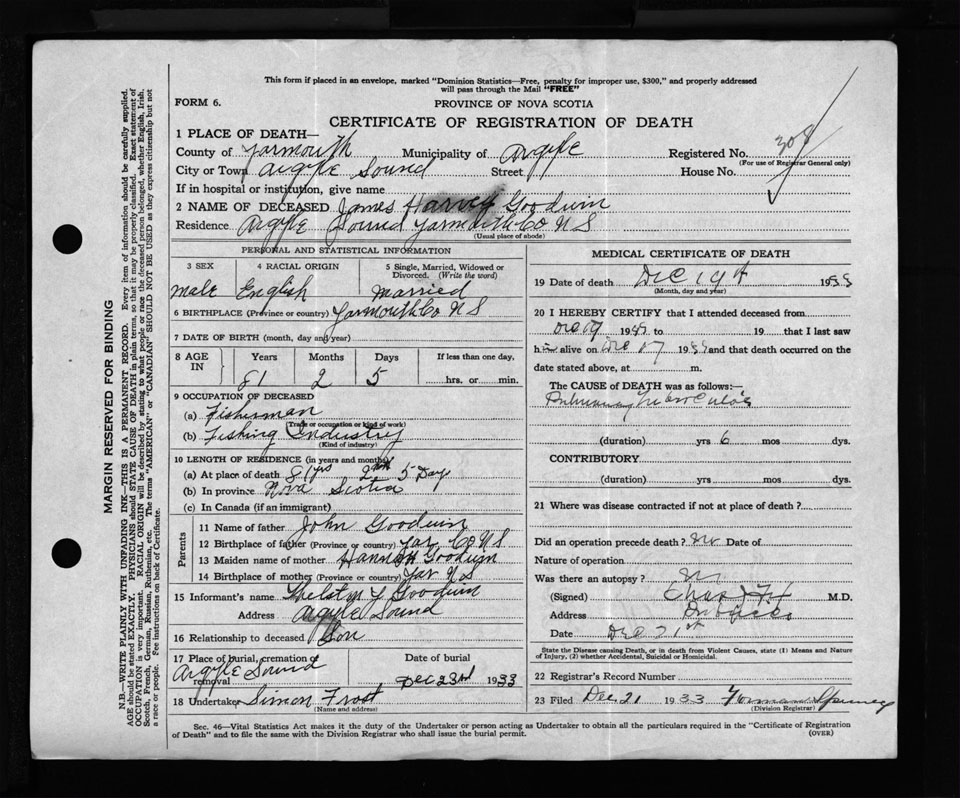 This form if placed in an envelope, marked "Dominion Statistics—Free, penalty for improper use, $300," and properly addressed
will pass through the Mail "FREE"
FORM 6.
PROVINCE OF NOVA SCOTIA
CERTIFICATE OF REGISTRATION OF DEATH
1 PLACE OF DEATH—
County of Yarmouth Municipality of Argyle Registered No. 308
(For use of Registrar General only)
City or Town Argyle Sound Street House No.
If in hospital or institution, give name
2 NAME OF DECEASED James Harvey Goodwin
Residence Argyle Sound Yarmouth Co N S
(Usual place of abode)
PERSONAL AND STATISTICAL INFORMATION
3 SEX
4 RACIAL ORIGIN
5 Single, Married, Widowed or
Divorced. (Write the word)
male English married
6 BIRTHPLACE (Province or country) Yarmouth Co N S
7 DATE OF BIRTH (month, day and year)
8 AGE
IN
Years Months Days If less than one day,
81 2 5 hrs. or min.
9 OCCUPATION OF DECEASED
(a) Fisherman
(Trade or occupation or kind of work)
(b) Fishing Industry
(Kind of industry)
10 LENGTH OF RESIDENCE (in years and months)
(a) At place of death 81 yrs 2 5 Day
(b) In province Nova Scotia
(c) In Canada (if an immigrant)
Parents
11 Name of father John Goodwin
12 Birthplace of father (Province or country) Yar Co N S
13 Maiden name of mother Hannah Goodwin
14 Birthplace of mother (Province or country) Yar N S
15 Informant's name Goodwin
Address Argyle Sound
16 Relationship to deceased Son
17 Place of burial, cremation or
removal Argyle Sound
Date of burial
Dec 23rd 1933
18 Undertaker Simon Frost
(Name and address)
MEDICAL CERTIFICATE OF DEATH
19 Date of death Dec 19th 193
(Month, day and year)
20 I HEREBY CERTIFY that I attended deceased from
19 to 19 that I last saw
h alive on Dec 17 19 and that death occurred on the
date stated above, at m.
The CAUSE OF DEATH was as follows:—
Pulmonary Tuberculosis
(duration) yrs 6 mos dys.
CONTRIBUTORY
(duration) yrs mos dys.
21 Where was disease contracted if not at place of death?
Did an operation precede death? no Date of
Nature of operation
Was there an autopsy? no
(Signed) Chas Fox M.D.
Address Pubnico
Date Dec 21st
State the Disease causing Death, or in death from Violent Causes, state (1) Means and Nature
of Injury, (2) whether Accidental, Suicidal or Homicidal.
22 Registrar's Record Number
23 Filed Dec 21 1933
(Division Registrar)
Sec. 46—Vital Statistics Act makes it the duty of the Undertaker or person acting as Undertaker to obtain all the particulars required in the "Certificate of Registration
of Death" and to file the same with the Division Registrar who shall issue the burial permit. (OVER)
MARGIN RESERVED FOR BINDING
N.B.—WRITE PLAINLY WITH UNFADING INK—THIS IS A PERMANENT RECORD. Every item of information should be carefully supplied.
AGE should be stated EXACTLY. PHYSICIANS should STATE CAUSE OF DEATH in plain terms, so that it may be properly classified. Exact statement of
OCCUPATION is very important. RACIAL ORIGIN will be described by stating to what people or race the deceased person belonged, whether English, Irish,
Scotch, French, German, Russian, Ruthenian, etc. The terms "AMERICAN" or "CANADIAN" SHOULD NOT BE USED as they express citizenship but not
a race or people. See instructions on back of Certificate.